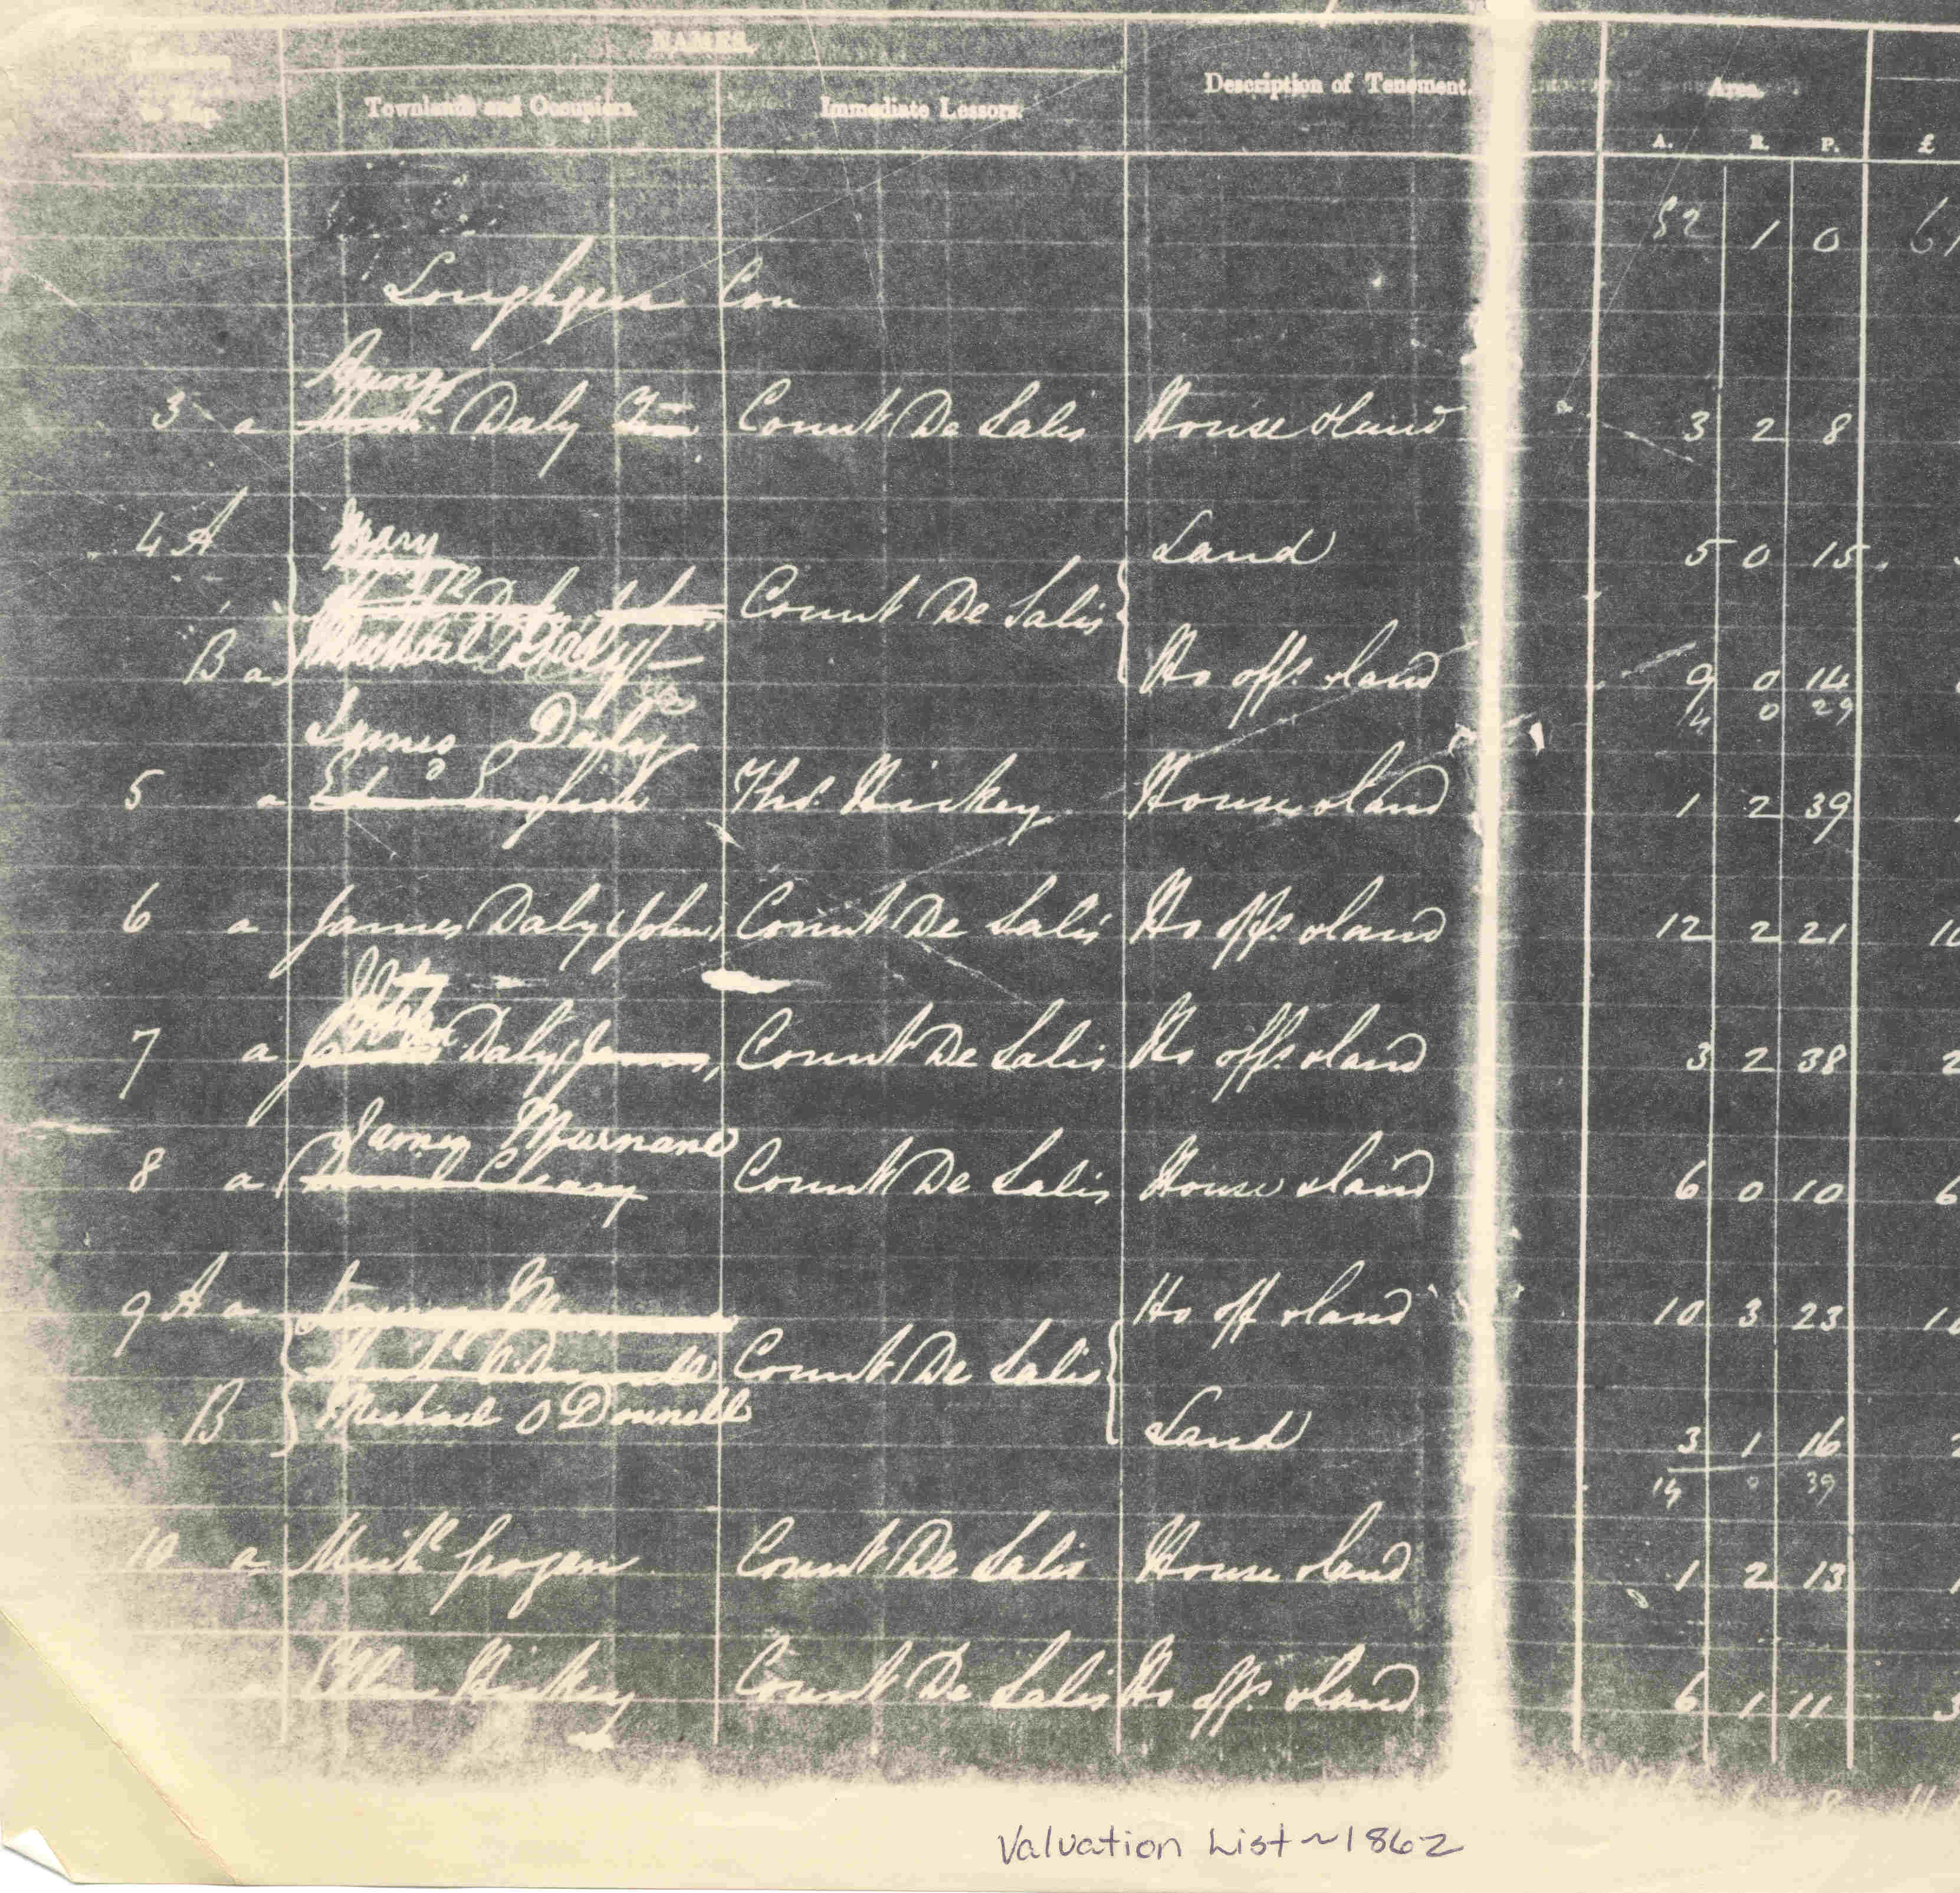 NAMES.
to Map. Townlands and Occupiers. Immediate Lessors. Description of Tenement. Area.
A. R. P. £
52 1 0 6
Loughgur Con
3 a Daly Count De Salis House & land 3 2 8
4 A Mary Land 5 0 15
Count De Salis
B a Michael Daly Ho off. & land 9 0 14
James Daly 14 0 29
5 a Edm English Thos. Hickey House & land 1 2 39
6 a James Daly (John) Count De Salis Ho offs. & land 12 2 21
7 a James Daly (James) Count De Salis Ho offs. & land 3 2 38 2
James Murnane
8 a Cleary Count De Salis House & land 6 0 10 6
9 A a James Murnane Ho off & land 10 3 23
Count De Salis
B Michael O'Donnell Land 3 1 16
14 0 39
10 a Mich. Grogan Count De Salis House & land 1 2 13
Ellen Hickey Count De Salis Ho offs. & land 6 1 11
Valuation List ~ 1862